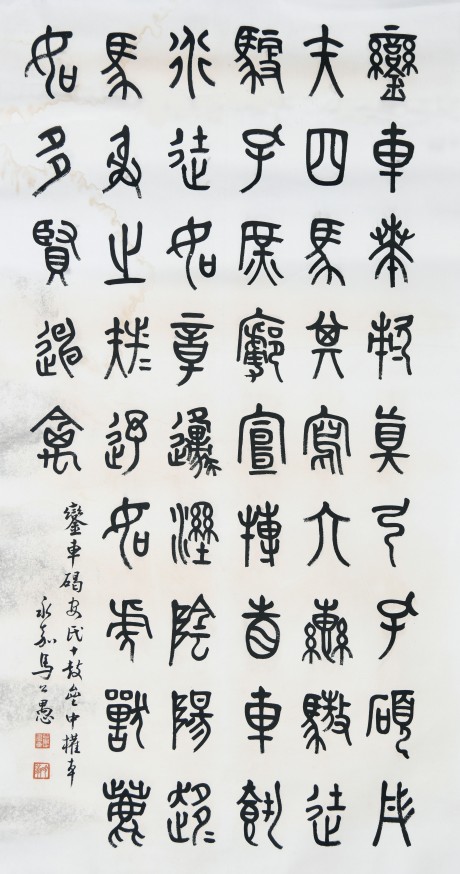 鑾車𠦪敕真弓孔碩彤
矢四馬其寫六轡驁徒
馭孔庶廓宣搏眚車載
行徒如章邍濕陰陽趍
馬射之迂如虎獸鹿
如多賢迧禽
鑾車碣安氏十鼓齋中權本
永嘉馬公愚